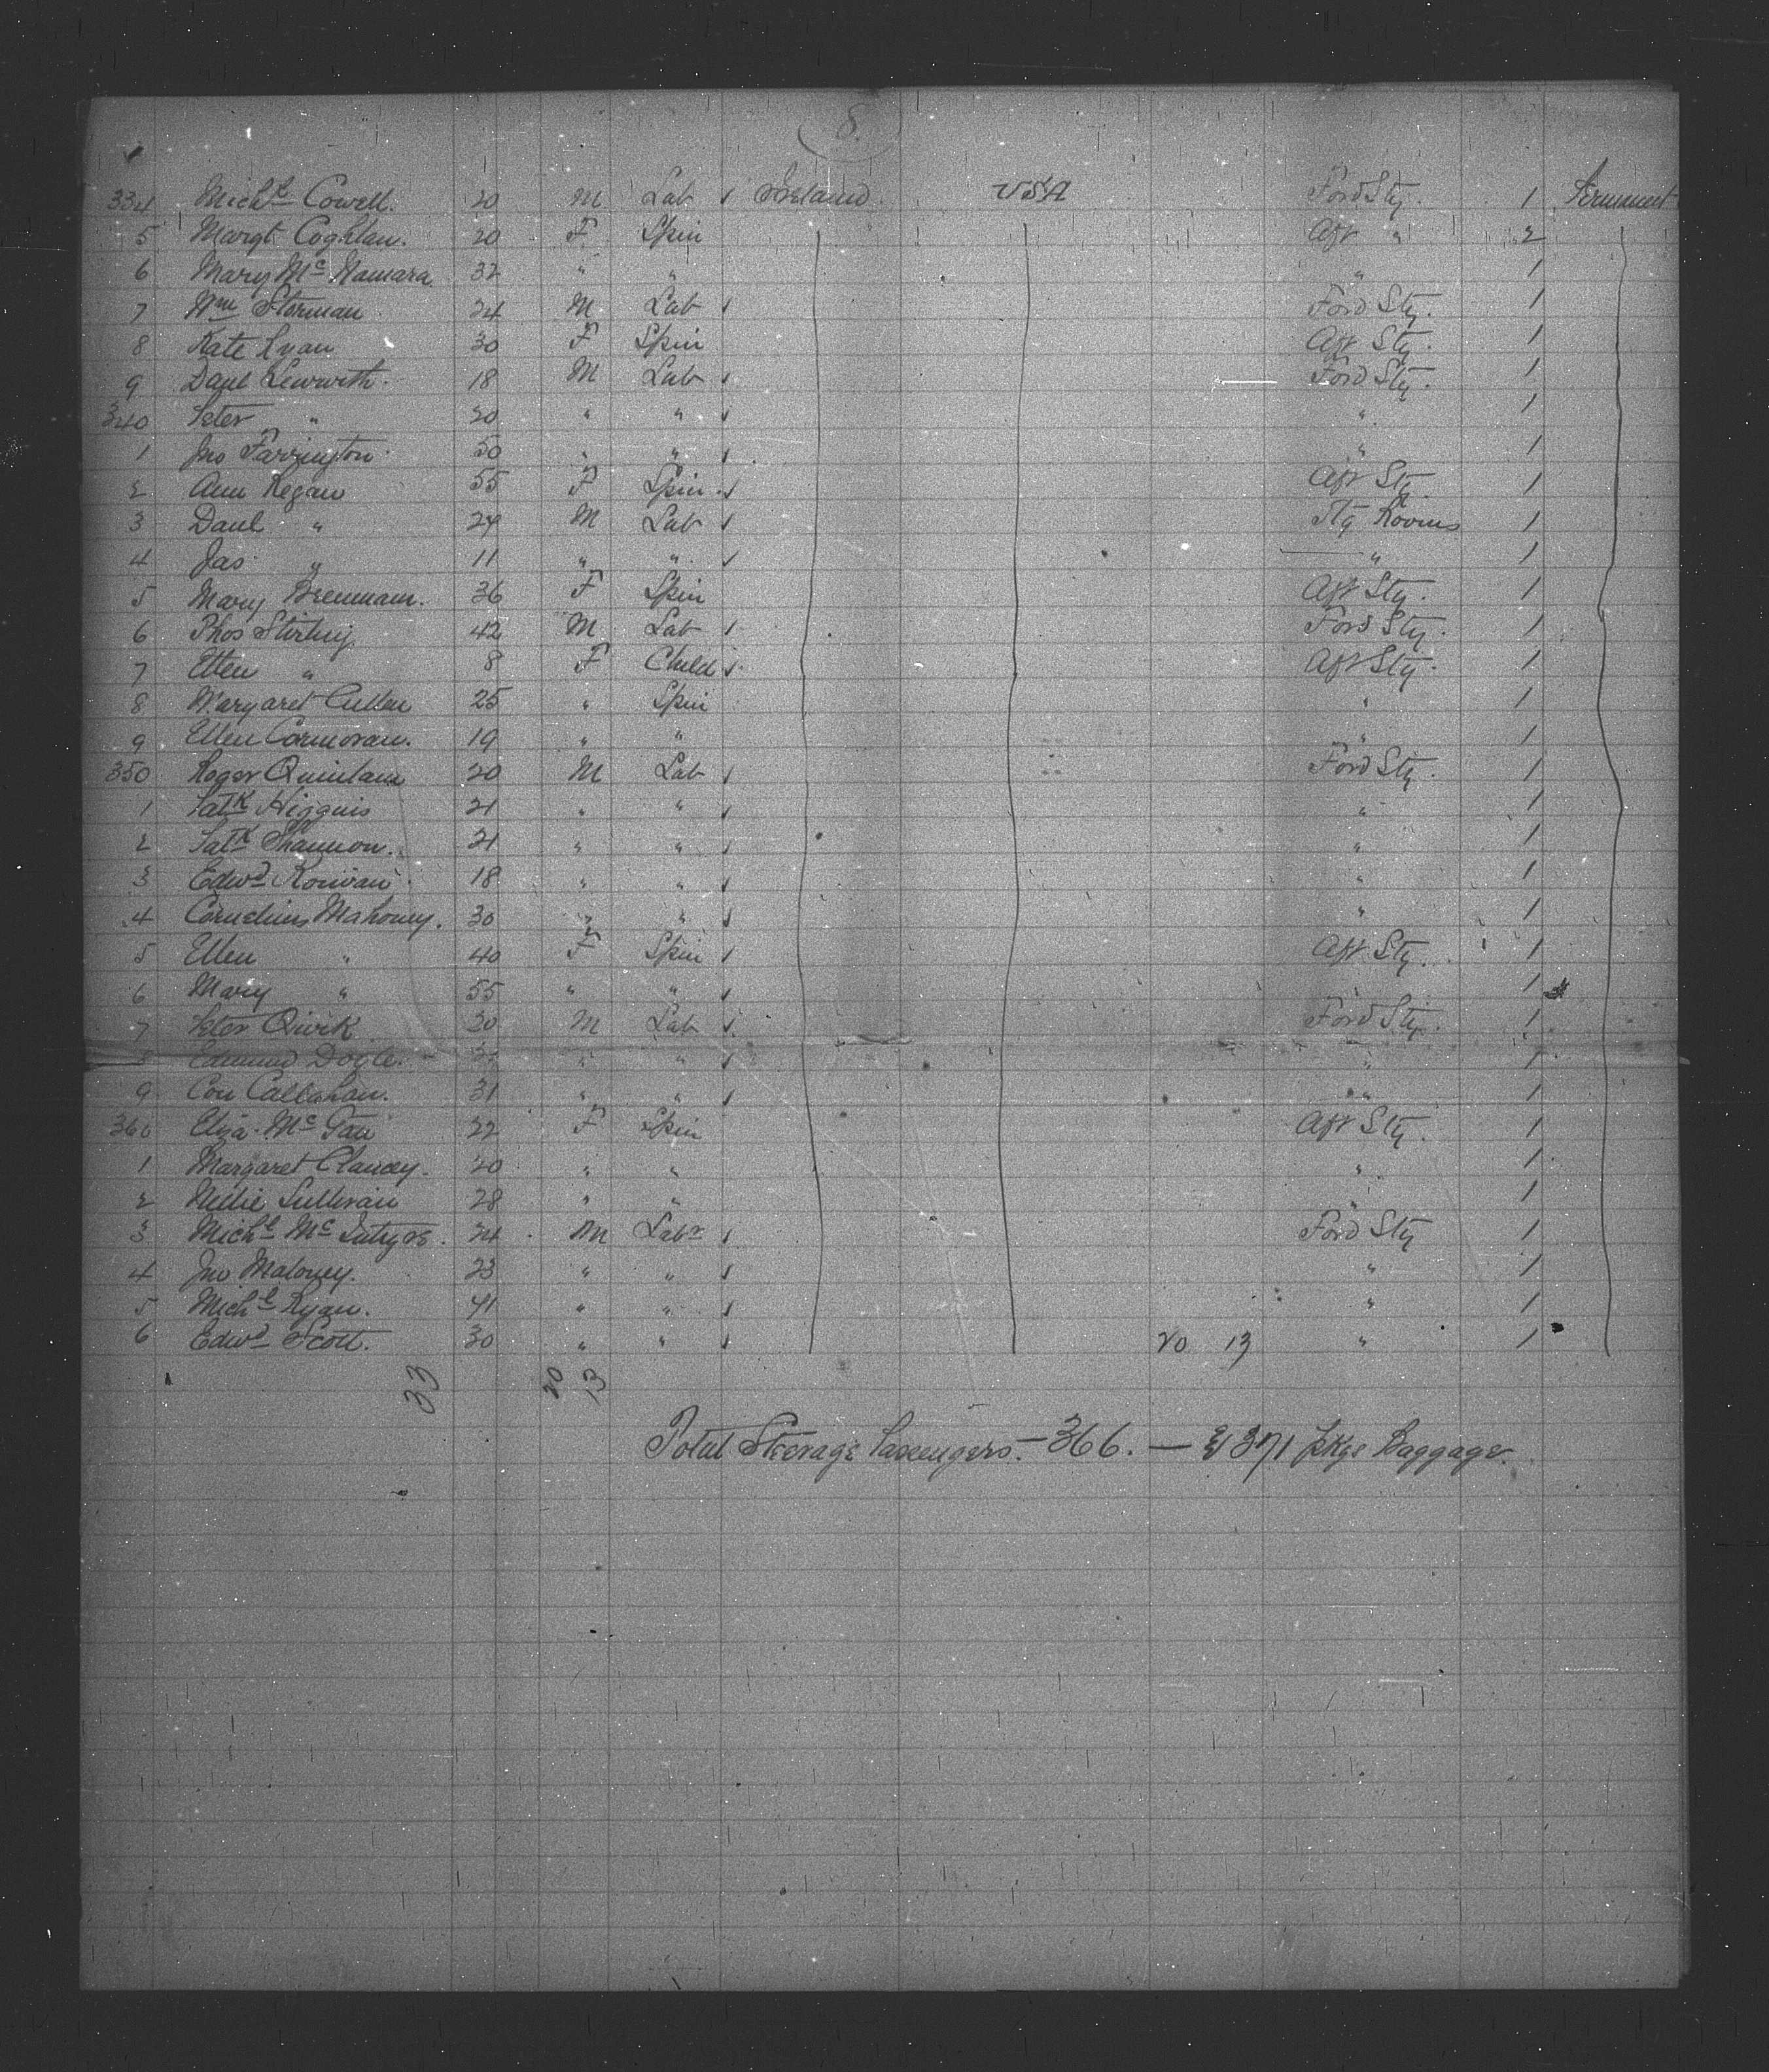 8.
334 Mich^l Cowell. 20 M Lab Ireland. USA Ford Stg. 1 Permanent
5 Margt Coghlan. 20 F Spin Aft " 2
6 Mary Mc Namara. 32 " " " 1
7 Wm Storman 24 M Lab Ford Stg. 1
8 Kate Ryan 30 F Spin Aft Stg. 1
9 Danl 18 M Lab Ford Stg. 1
340 Peter " 20 " " " 1
1 Jno Farrington. 50 " " " 1
2 Ann Regan 55 F Spin Aft Stg 1
3 Danl " 24 M Lab Stg. Rooms 1
4 Jas. " 11 " " " 1
5 Mary Brennan. 36 F Spin Aft Stg. 1
6 Thos Stirling 42 M Lab Ford Stg. 1
7 Ellen " 8 F Child Aft Stg. 1
8 Margaret Cullen 25 " Spin " 1
9 Ellen Cormoran. 19 " " " 1
350 Roger Quinlan 20 M Lab Ford Stg. 1
1 Patk Higgins 21 " " " 1
2 Patk Shannon. 21 " " " 1
3 Edwd 18 " " " 1
4 Cornelius Mahoney. 30 " " " 1
5 Ellen " 40 F Spin Aft Stg. 1
6 Mary " 55 " " 1
7 Peter Quirk 30 M Lab Ford Stg. 1
8 Edmund Doyle. " " " 1
9 Con Callahan. 31 " " " 1
360 Eliza. Mc 22 F Spin Aft Stg. 1
1 Margaret Clancey. 20 " " " 1
2 Nellie Sullivan 28 " " " 1
3 Mich^l Mc 24 M Labr Ford Stg 1
4 Jno Maloney. 23 " " " 1
5 Mich^l Ryan. 41 " " " 1
6 Edwd Scott. 30 " " 20 13 " 1
33 20 13
Total Steerage Passengers. — 366. — & 371 pkgs Baggage.